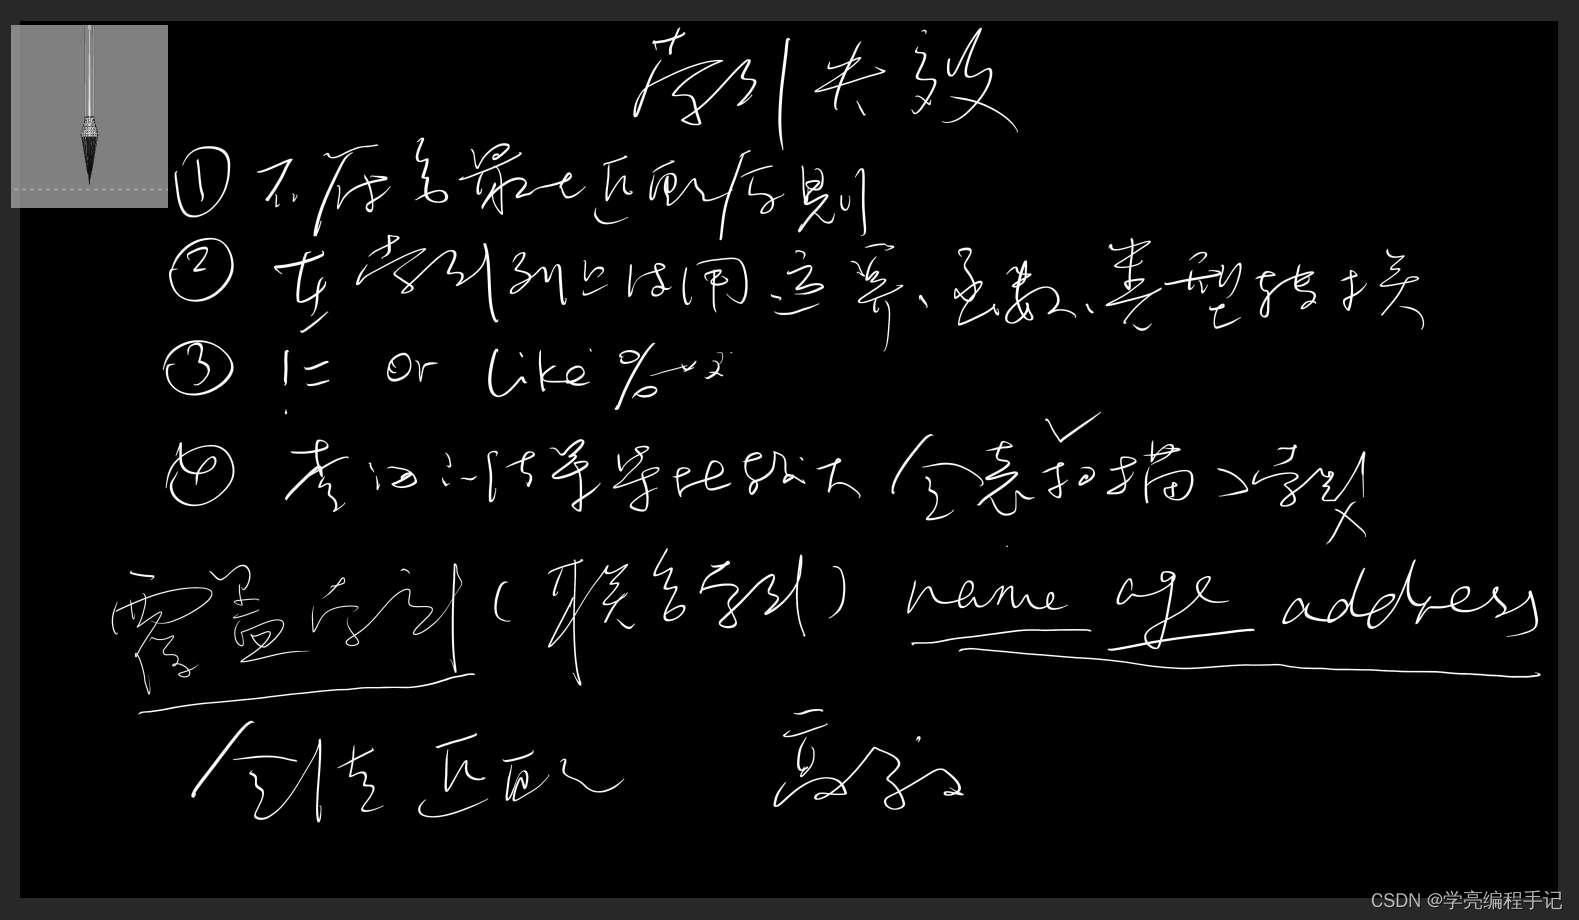 索引失效
① 不符合最左匹配原则
② 在索引列上使用运算、函数、类型转换
③ != or like %
④ 查询的结果集比较大 全表扫描 > 索引
覆盖索引 (联合索引) name age address
全值匹配 高效
CSDN @学亮编程手记